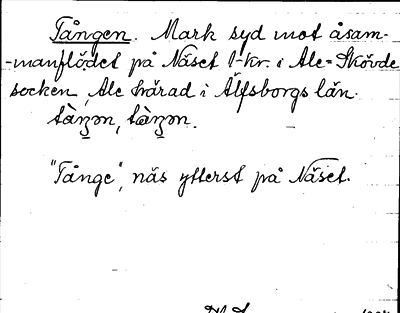 Tången. Mark syd mot åsam-
-manflödet på Näset 1-kr. i Ale-Skövde
socken, Ale härad i Älfsborgs län.
"Tånge", näs ytterst på Näset.